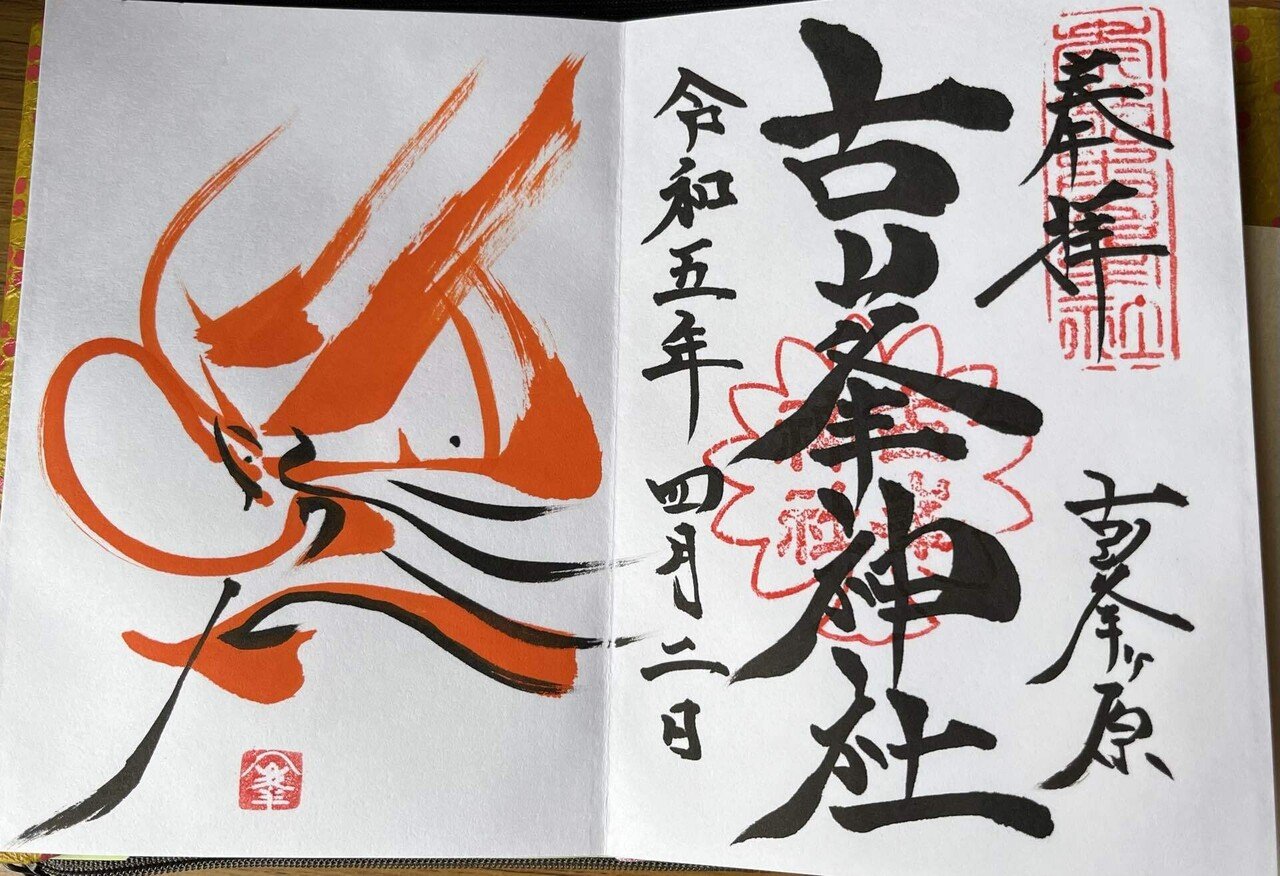 奉拝
古峯ヶ原
古峯神社
令和五年 四月二日
峯